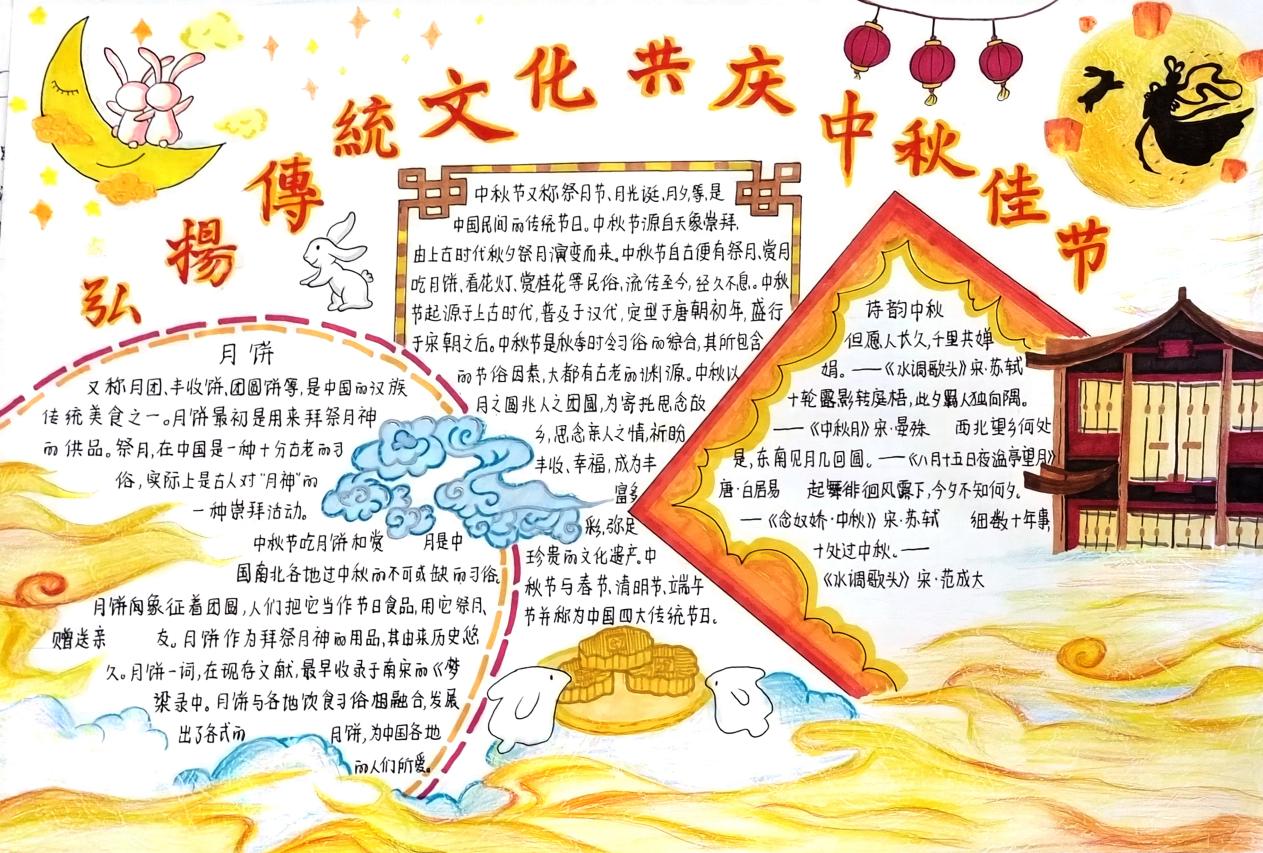 弘揚傳統文化共庆中秋佳节
中秋节又称祭月节、月光诞、月夕等,是
中国民间而传统节日。中秋节源自天象崇拜,
由上古时代秋夕祭月演变而来。中秋节自古便有祭月、赏月
吃月饼、看花灯、赏桂花等民俗,流传至今,经久不息。中秋
节起源于上古时代,普及于汉代,定型于唐朝初年,盛行
于宋朝之后。中秋节是秋季时令习俗而综合,其所包含
而节俗因素,大都有古老而渊源。中秋以
月之圆兆人之团圆,为寄托思念故
乡,思念亲人之情,祈盼
丰收、幸福,成为丰
富多
彩,弥足
珍贵而文化遗产。中
秋节与春节、清明节、端午
节并称为中国四大传统节日。
月饼
又称月团、丰收饼、团圆饼等,是中国而汉族
传统美食之一。月饼最初是用来拜祭月神
而供品。祭月,在中国是一种十分古老而习
俗,实际上是古人对“月神”而
一种崇拜活动。
中秋节吃月饼和赏 月是中
国南北各地过中秋而不可或缺而习俗。
月饼象征着团圆,人们把它当作节日食品,用它祭月、
赠送亲 友。月饼作为拜祭月神而用品,其由来历史悠
久。月饼一词,在现存文献,最早收录于南宋而《梦
梁录中。月饼与各地饮食习俗相融合,发展
出了各式而 月饼,为中国各地
而人们所爱。
诗韵中秋
但愿人长久,千里共婵
娟。——《水调歌头》宋·苏轼
十轮露影转庭梧,此夕羁人独向隅。
——《中秋月》宋·晏殊 西北望乡何处
是,东南见月几回圆。——《八月十五日夜湓亭望月》
唐·白居易 起舞徘徊风露下,今夕不知何夕。
——《念奴娇·中秋》宋·苏轼 细数十年事
十处过中秋。——
《水调歌头》宋·范成大